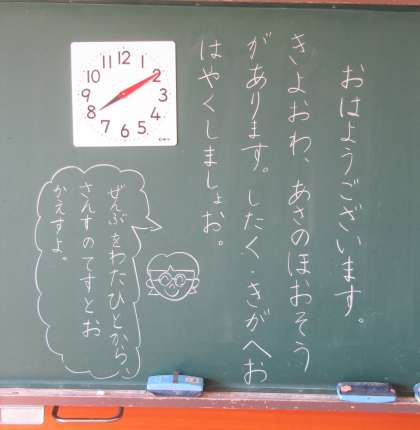 おはようございます。
きよおわ、あさのほおそう
があります。したく・きがへお
はやくしましょお。
ぜんぶをわたひとから、
さんすのてすとお
かえすよ。
12
1
2
3
4
5
6
7
8
9
10
11